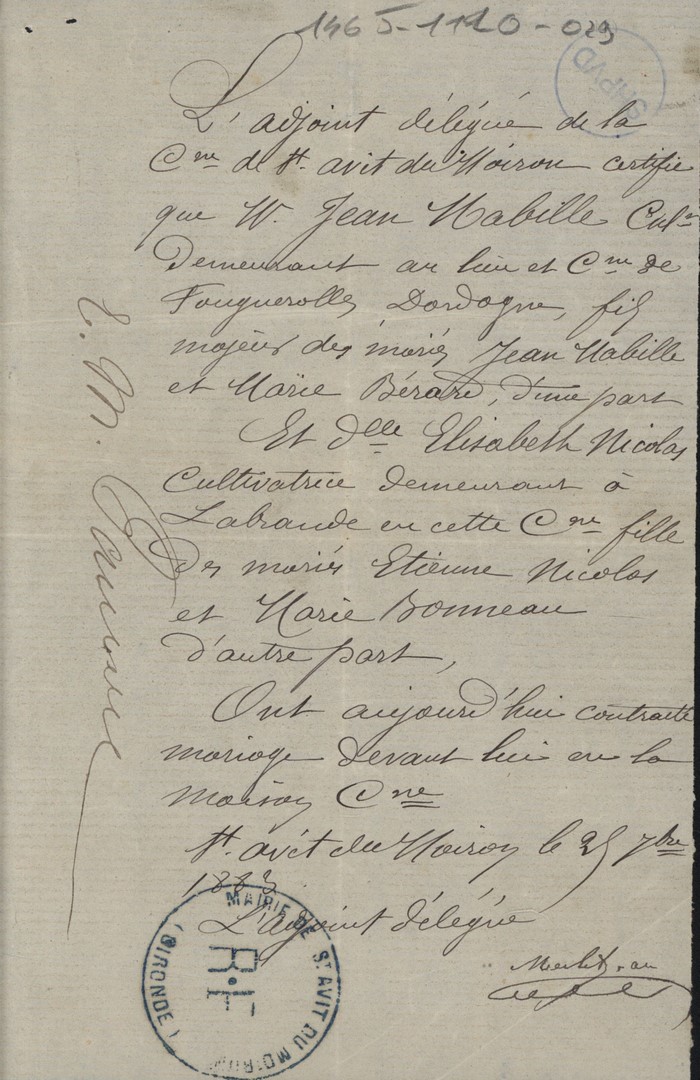 1465-1110-029
SHPVD
L'adjoint délégué de la
Cne de St. avit du Moiron certifie
que M. Jean Mabille Culr
demeurant au lieu et Cne de
Fouguerolles Dordogne, fils
majeur des mariés Jean Mabille
et Marie Bérard, d'une part
Et dlle Elisabeth Nicolas
Cultivatrice demeurant à
Labrande en cette Cne fille
des mariés Etienne Nicolas
et Marie Bonneau
d'autre part,
Ont aujourd'hui contracté
mariage devant lui en la
maison Cne
St. avit du Moiron le 25 7bre
1883
L'adjoint délégué
MAIRIE DE ST AVIT DU MOIRON
(GIRONDE)
R.F